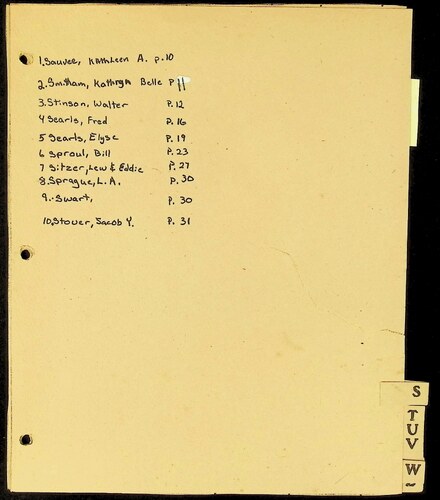 1. Sauvee, Kathleen A. p.10
2. Smitham, Kathryn Belle P 11
3. Stinson, Walter P.12
4 Searls, Fred P.16
5 Searls, Elyse P.19
6 Sproul, Bill P.23
7 Sitzer, Lew & Eddie P.27
8. Sprague, L.A. P.30
9. Swart, P.30
10. Stover, Jacob Y. P.31
S
T
U
V
W